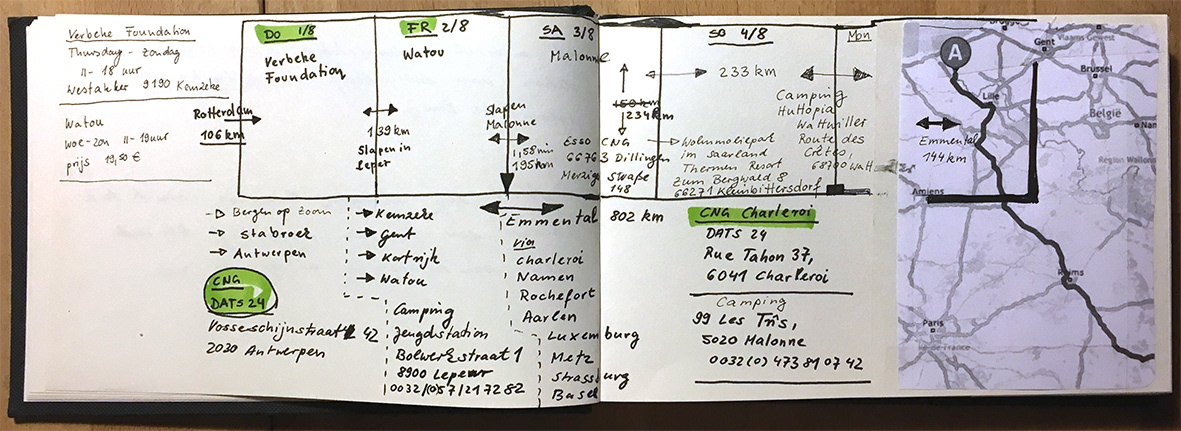 Verbeke Foundation
Thursday - Zondag
11 - 18 uur
Westakker 9190 Kemzeke
Watou
woe - zon 11 - 19 uur
prijs 19,50 €
Rotterdam
106 km
DO 1/8
Verbeke
Foundation
FR 2/8
Watou
139 km
Slapen in
Ieper
SA 3/8
Malonne
Slapen
Malonne
1,58 min
195 km
Esso
6676
Merzig
150 km
234 km
CNG
3 Dillingen
Straße
148
SO 4/8
233 km
Wohnmobilepark
im Saarland
Thermen Resort
Zum Bergwald 8
66271 Kleinbittersdorf
Mon
Camping
Huttopia
Wattwiller
Route des
Crêtes,
68700 Watt
Bergen op Zoom
Stabroek
Antwerpen
CNG
DATS 24
Vosseschijnstraat 42
2030 Antwerpen
Kemzeke
Gent
Kortrijk
Watou
Camping
Jeugdstation
Bolwerkstraat 1
8900 Ieper
0032/(0)57/21 72 82
Emmental 802 km
via
Charleroi
Namen
Rochefort
Aarlen
Luxemburg
Metz
Strassburg
Basel
CNG Charleroi
DATS 24
Rue Tahon 37,
6041 Charleroi
Camping
99 Les Trîs,
5020 Malonne
0032(0) 473 81 07 42
A
Brugge
Gent
Vlaams Gewest
Brussel
Lille
België
Nam
Région Wallon
Emmental
144 km
Amiens
Reims
Paris
Île-de-France